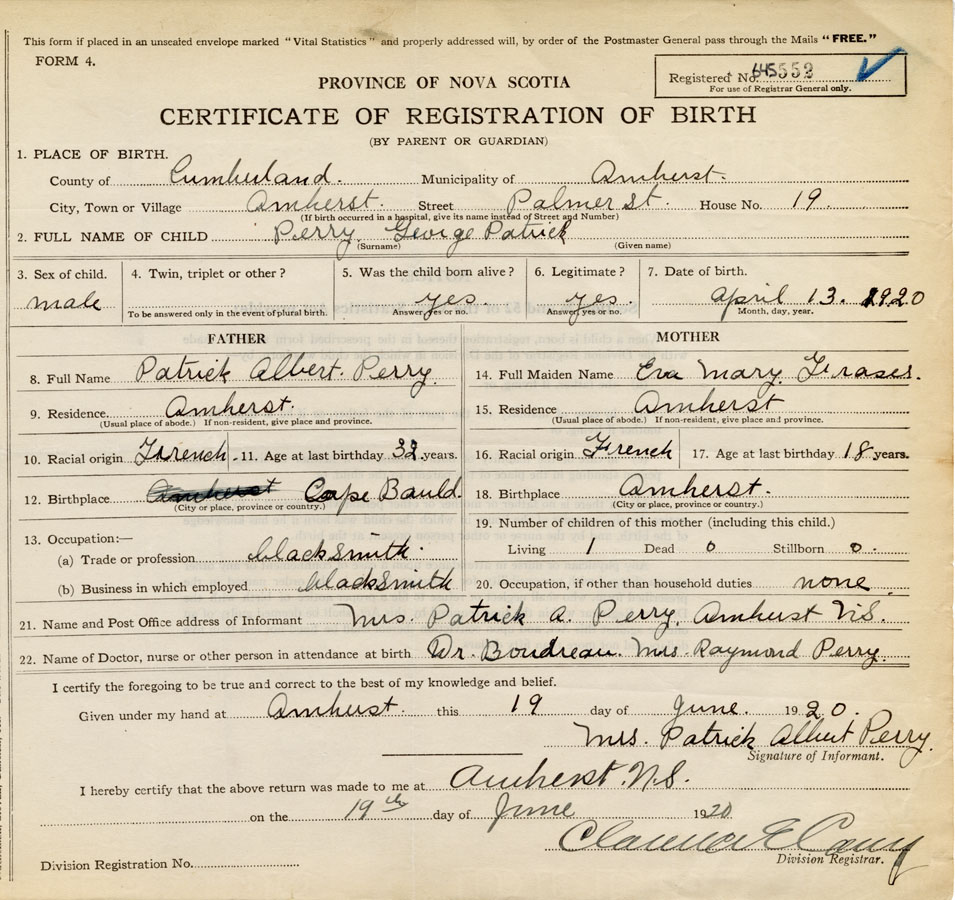 This form if placed in an unsealed envelope marked "Vital Statistics" and properly addressed will, by order of the Postmaster General pass through the Mails "FREE."
FORM 4.
Registered No. 645552
For use of Registrar General only.
PROVINCE OF NOVA SCOTIA
CERTIFICATE OF REGISTRATION OF BIRTH
(BY PARENT OR GUARDIAN)
1. PLACE OF BIRTH.
County of Cumberland. Municipality of Amherst.
City, Town or Village Amherst. Street Palmer St. House No. 19.
(If birth occurred in a hospital, give its name instead of Street and Number)
2. FULL NAME OF CHILD Perry George Patrick
(Surname) (Given name)
3. Sex of child. 4. Twin, triplet or other? 5. Was the child born alive? 6. Legitimate? 7. Date of birth.
male yes. yes. April 13. 1920
To be answered only in the event of plural birth. Answer yes or no. Answer yes or no. Month, day, year.
FATHER MOTHER
8. Full Name Patrick Albert. Perry. 14. Full Maiden Name Eva Mary Fraser.
9. Residence. Amherst. 15. Residence Amherst
(Usual place of abode.) If non-resident, give place and province. (Usual place of abode.) If non-resident, give place and province.
10. Racial origin French. 11. Age at last birthday 32 years. 16. Racial origin French 17. Age at last birthday 18 years.
12. Birthplace Amherst Cape Bauld. 18. Birthplace Amherst.
(City or place, province or country.) (City or place, province or country.)
13. Occupation:— 19. Number of children of this mother (including this child.)
(a) Trade or profession blacksmith. Living 1 Dead 0 Stillborn 0.
(b) Business in which employed blacksmith 20. Occupation, if other than household duties none
21. Name and Post Office address of Informant Mrs. Patrick A. Perry. Amherst N.S.
22. Name of Doctor, nurse or other person in attendance at birth Dr. Boudreau. Mrs. Raymond Perry.
I certify the foregoing to be true and correct to the best of my knowledge and belief.
Given under my hand at Amherst. this 19 day of June. 1920.
Mrs. Patrick Albert Perry.
Signature of Informant.
I hereby certify that the above return was made to me at Amherst. N.S.
on the 19th day of June 1920
Clarence E
Division Registrar.
Division Registration No.